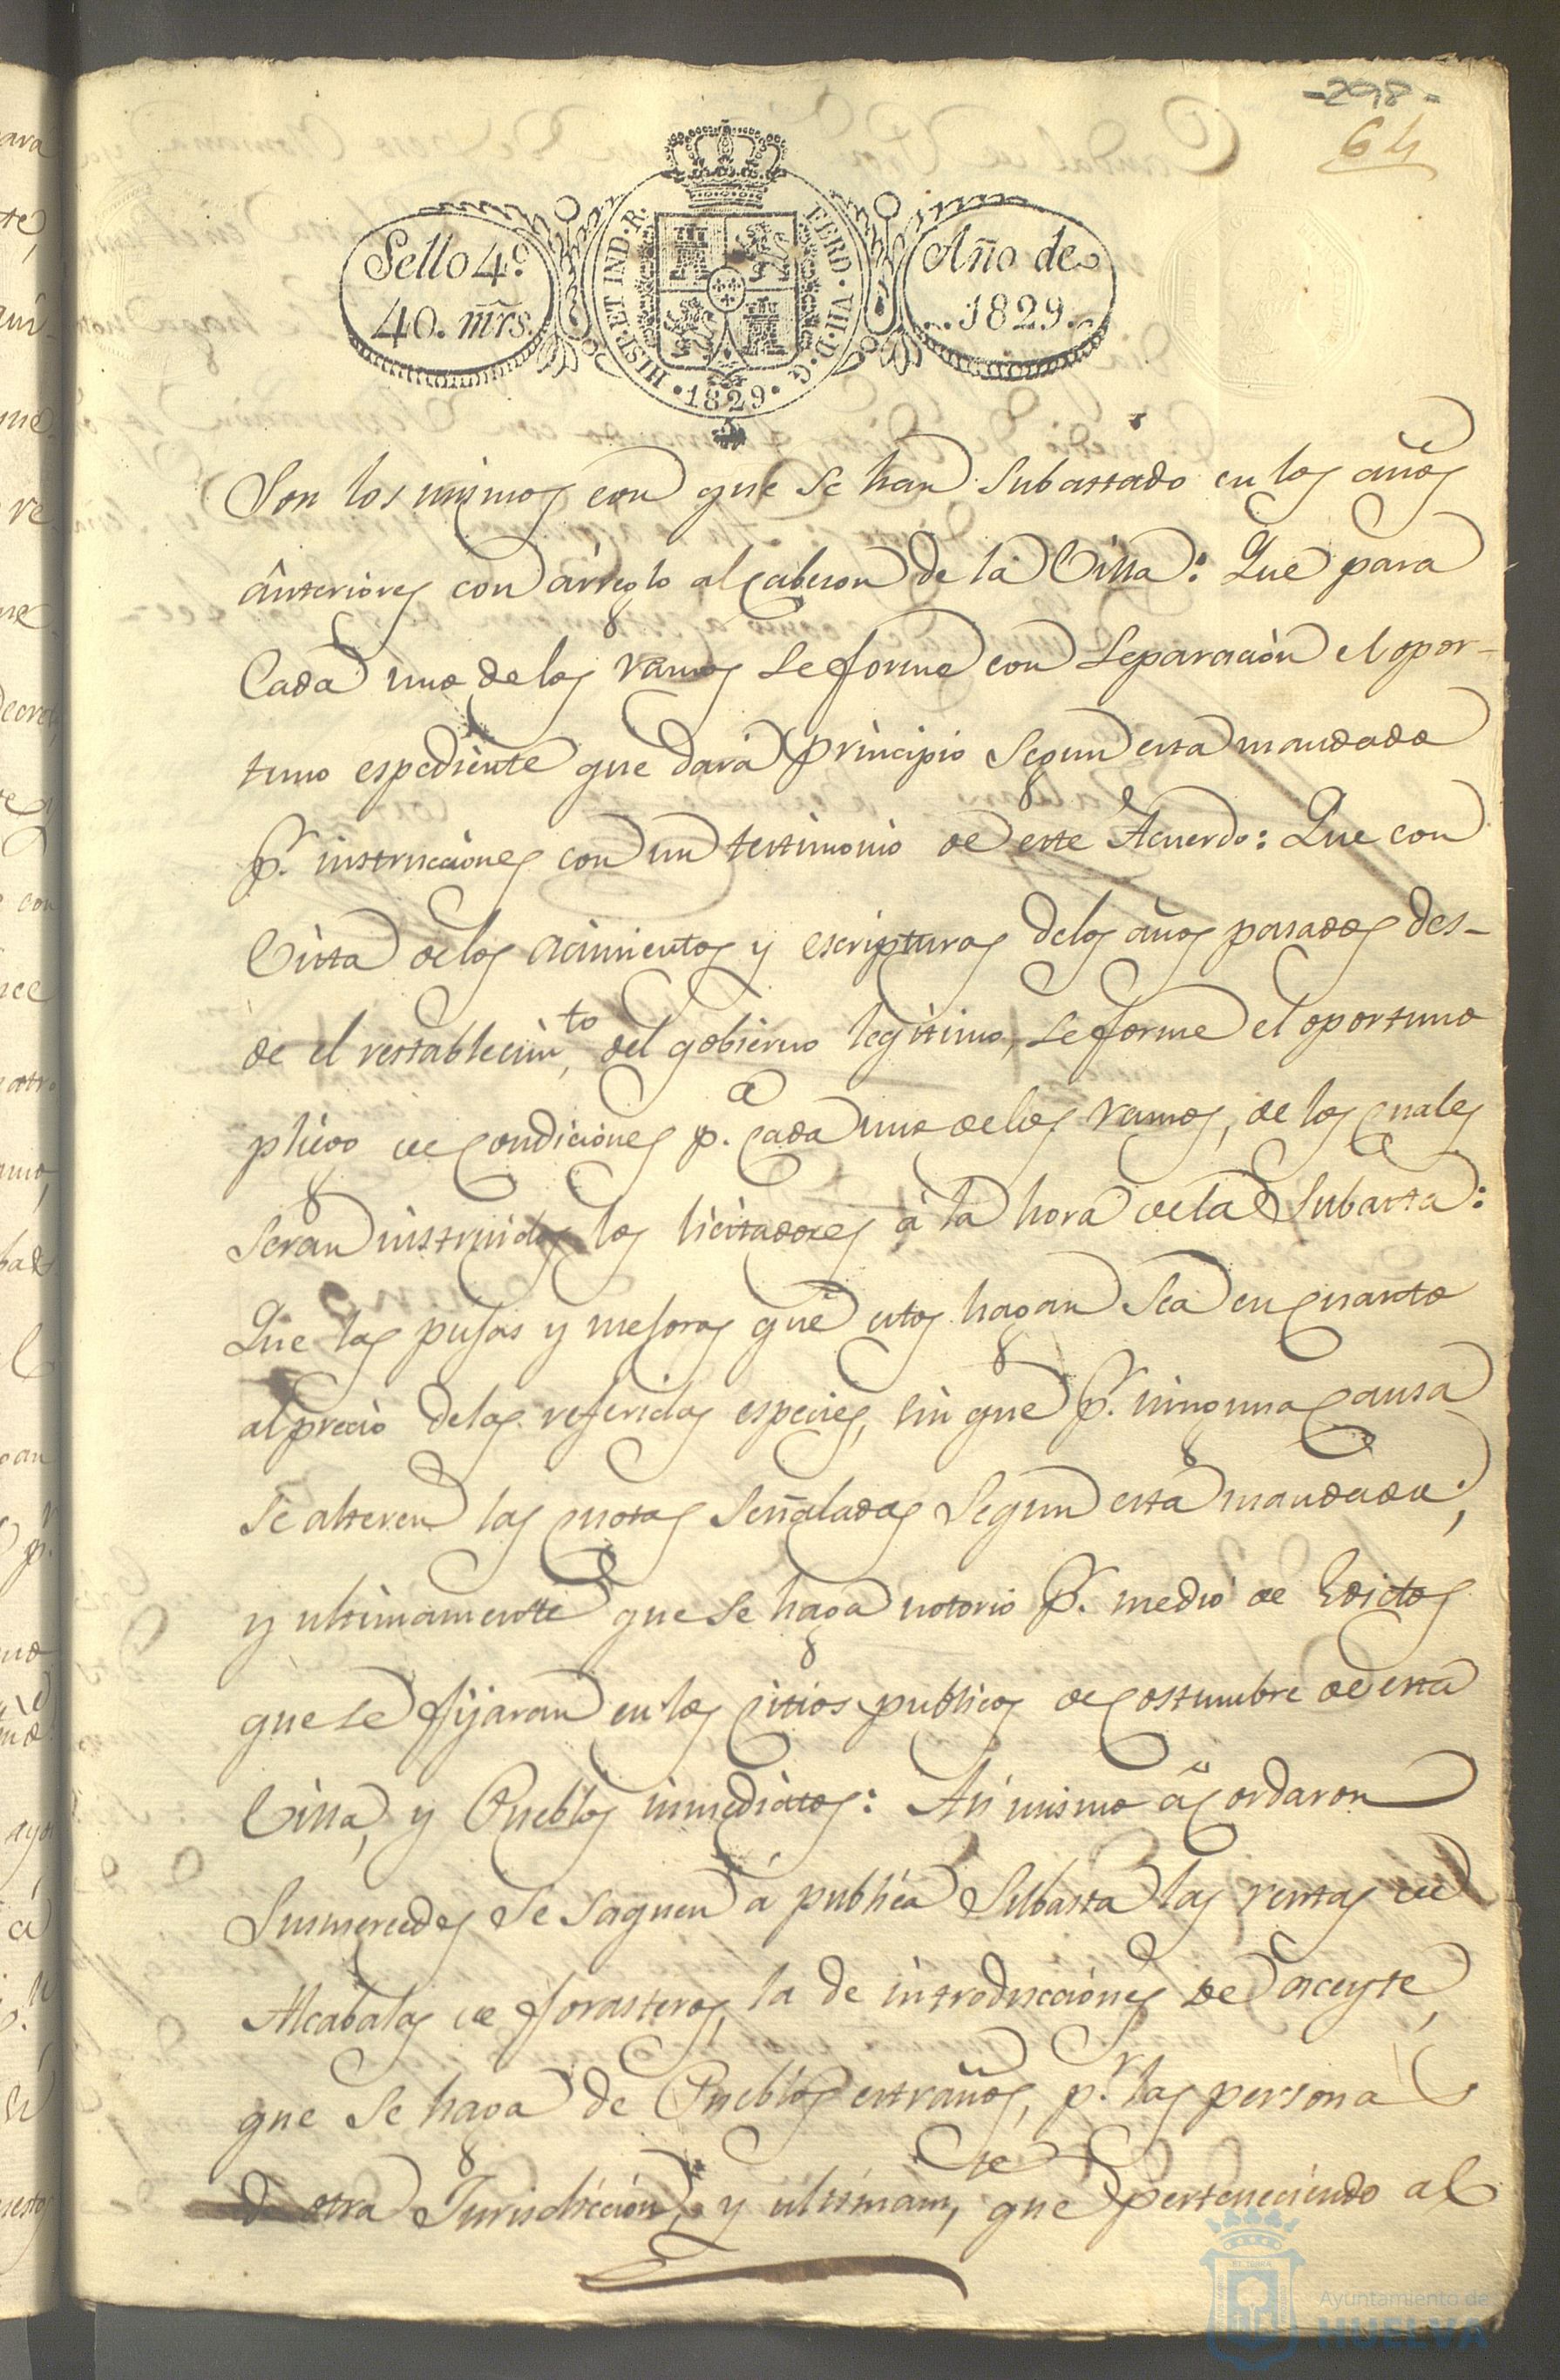 -298-
64
Sello 4º.
40. mrs.
HISP. ET IND. R. FERD. VII. D. G. 1829.
Año de
1829.
Son los mismos con que se han subastado en los años
anteriores con arreglo al cabeson de la Villa: Que para
Cada uno de los ramos se forme con separacion el opor-
tuno espediente que dara principio segun esta mandado
pr. instrucciones con un testimonio de este Acuerdo: Que con
Vista de los acimientos y escripturas de los años pasados des-
de el restablecimto, del gobierno legitimo, se forme el oportuno
pliego de condiciones pa. cada uno de los ramos, de los cuales
seran instruidos los licitadores á la hora de la subasta:
Que las pujas y mejoras que estos hagan sea en cuanto
al precio de las referidas especies, sin que pr. ninguna causa
se alteren las cuotas señaladas segun esta mandado;
y ultimamente que se haga notorio pr. medio de Edictos
que se fijaran en los citios publicos de costumbre de esta
Villa, y Pueblos inmediatos: Asi mismo acordaron
Susmercedes se saquen á publica subasta las rentas de
Alcabalas de forasteros, la de introducciones de aceyte,
que se haga de Pueblos estraños, pr. las personas
de otra Jurisdiccion, y ultimamte, que perteneciendo al
Ayuntamiento de
HUELVA